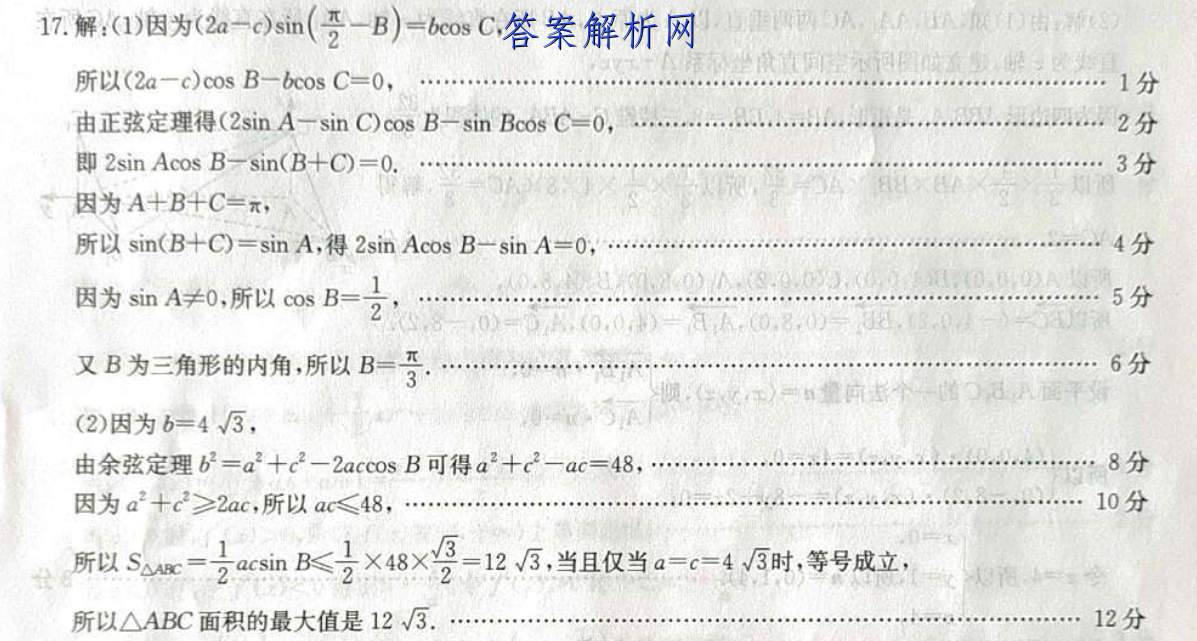 17.解:(1)因为(2a-c)sin(π/2-B)=bcos C,答案解析网
所以(2a-c)cos B-bcos C=0, …… 1分
由正弦定理得(2sin A-sin C)cos B-sin Bcos C=0, …… 2分
即 2sin Acos B-sin(B+C)=0. …… 3分
因为 A+B+C=π,
所以 sin(B+C)=sin A,得 2sin Acos B-sin A=0, …… 4分
因为 sin A≠0,所以 cos B=1/2, …… 5分
又 B 为三角形的内角,所以 B=π/3. …… 6分
(2)因为 b=4√3,
由余弦定理 b²=a²+c²-2accos B 可得 a²+c²-ac=48, …… 8分
因为 a²+c²≥2ac,所以 ac≤48, …… 10分
所以 S△ABC=1/2acsin B≤1/2×48×√3/2=12√3,当且仅当 a=c=4√3时,等号成立,
所以△ABC 面积的最大值是 12√3. …… 12分